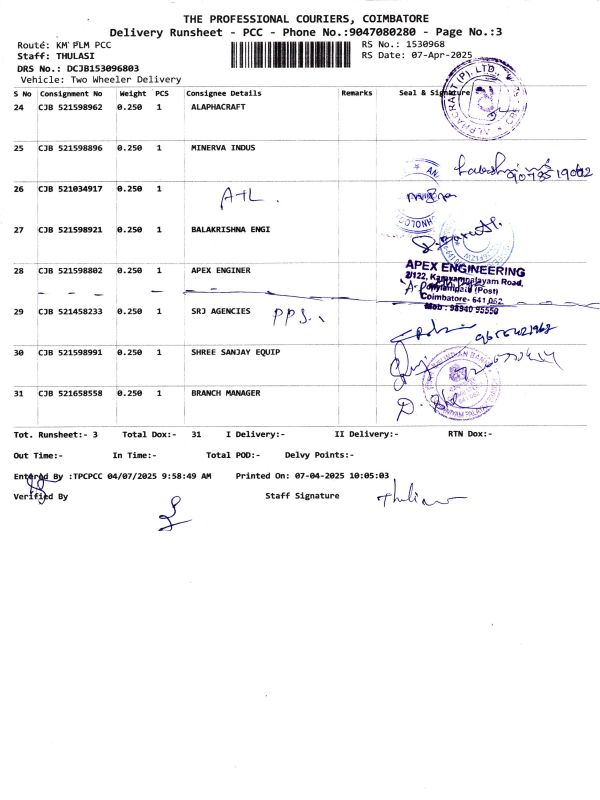 THE PROFESSIONAL COURIERS, COIMBATORE
Delivery Runsheet - PCC - Phone No.:9047080280 - Page No.:3
Route: KM PLM PCC
RS No.: 1530968
Staff: THULASI
RS Date: 07-Apr-2025
DRS No.: DCJB153096803
Vehicle: Two Wheeler Delivery
S No Consignment No Weight PCS Consignee Details Remarks Seal & Signature
24 CJB 521598962 0.250 1 ALAPHACRAFT
25 CJB 521598896 0.250 1 MINERVA INDUS
26 CJB 521034917 0.250 1 ATL.
27 CJB 521598921 0.250 1 BALAKRISHNA ENGI
28 CJB 521598802 0.250 1 APEX ENGINER
APEX ENGINEERING
2/122, Karayampalayam Road,
Mylampatti (Post)
Coimbatore- 641 062
Mob : 98940 95550
29 CJB 521458233 0.250 1 SRJ AGENCIES PPS..
30 CJB 521598991 0.250 1 SHREE SANJAY EQUIP
31 CJB 521658558 0.250 1 BRANCH MANAGER
Tot. Runsheet:- 3 Total Dox:- 31 I Delivery:- II Delivery:- RTN Dox:-
Out Time:- In Time:- Total POD:- Delvy Points:-
Entered By :TPCPCC 04/07/2025 9:58:49 AM Printed On: 07-04-2025 10:05:03
Verified By Staff Signature